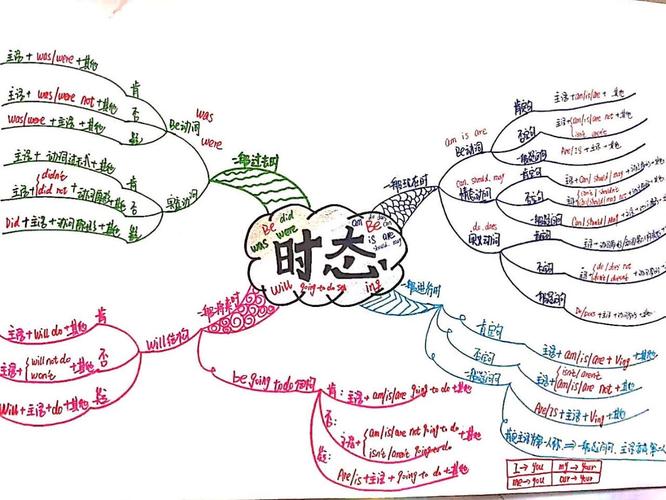 时态
Be did
was were
Be
is are
should may
will going to do
ing
一般过去时
was
Be动词
were
主语 + was/were + 其他
肯
主语 + was/were not + 其他
否
was/were + 主语 + 其他
疑
实义动词
主语 + 动词过去式 + 其他
肯
主语 + {didn't
did not + 动词原形 + 其他
否
Did + 主语 + 动词原形 + 其他
疑
一般现在时
am is are
Be动词
肯定句
主语 + am/is/are + 其他
否定句
主语 + {am/is/are not + 其他
isn't aren't
一般疑问
Are/Is + 主语 + 其他
can should may
情态动词
肯定句
主语 + can/should/may +
否定句
一般疑问
Can/should/may + 主语 +
do does
实义动词
肯定句
否定句
do/does not
一般疑问
Do/Does + 主语 +
一般将来时
Will结构
主语 + will do + 其他
肯
主语 + {will not do
won't + 其他
否
Will + 主语 + do + 其他
疑
be going to do结构
肯: 主语 + am/is/are going to do + 其他
否:
主语 + {am/is/are not going to do
isn't/aren't going to do + 其他
疑:
Are/is + 主语 + going to do + 其他
一般进行时
肯定句
主语 + am/is/are + Ving + 其他
否定句
主语 + {isn't/aren't
am/is/are not + Ving + 其他
一般疑问
Are/Is + 主语 + Ving + 其他
I → you my → your
me → you our → your